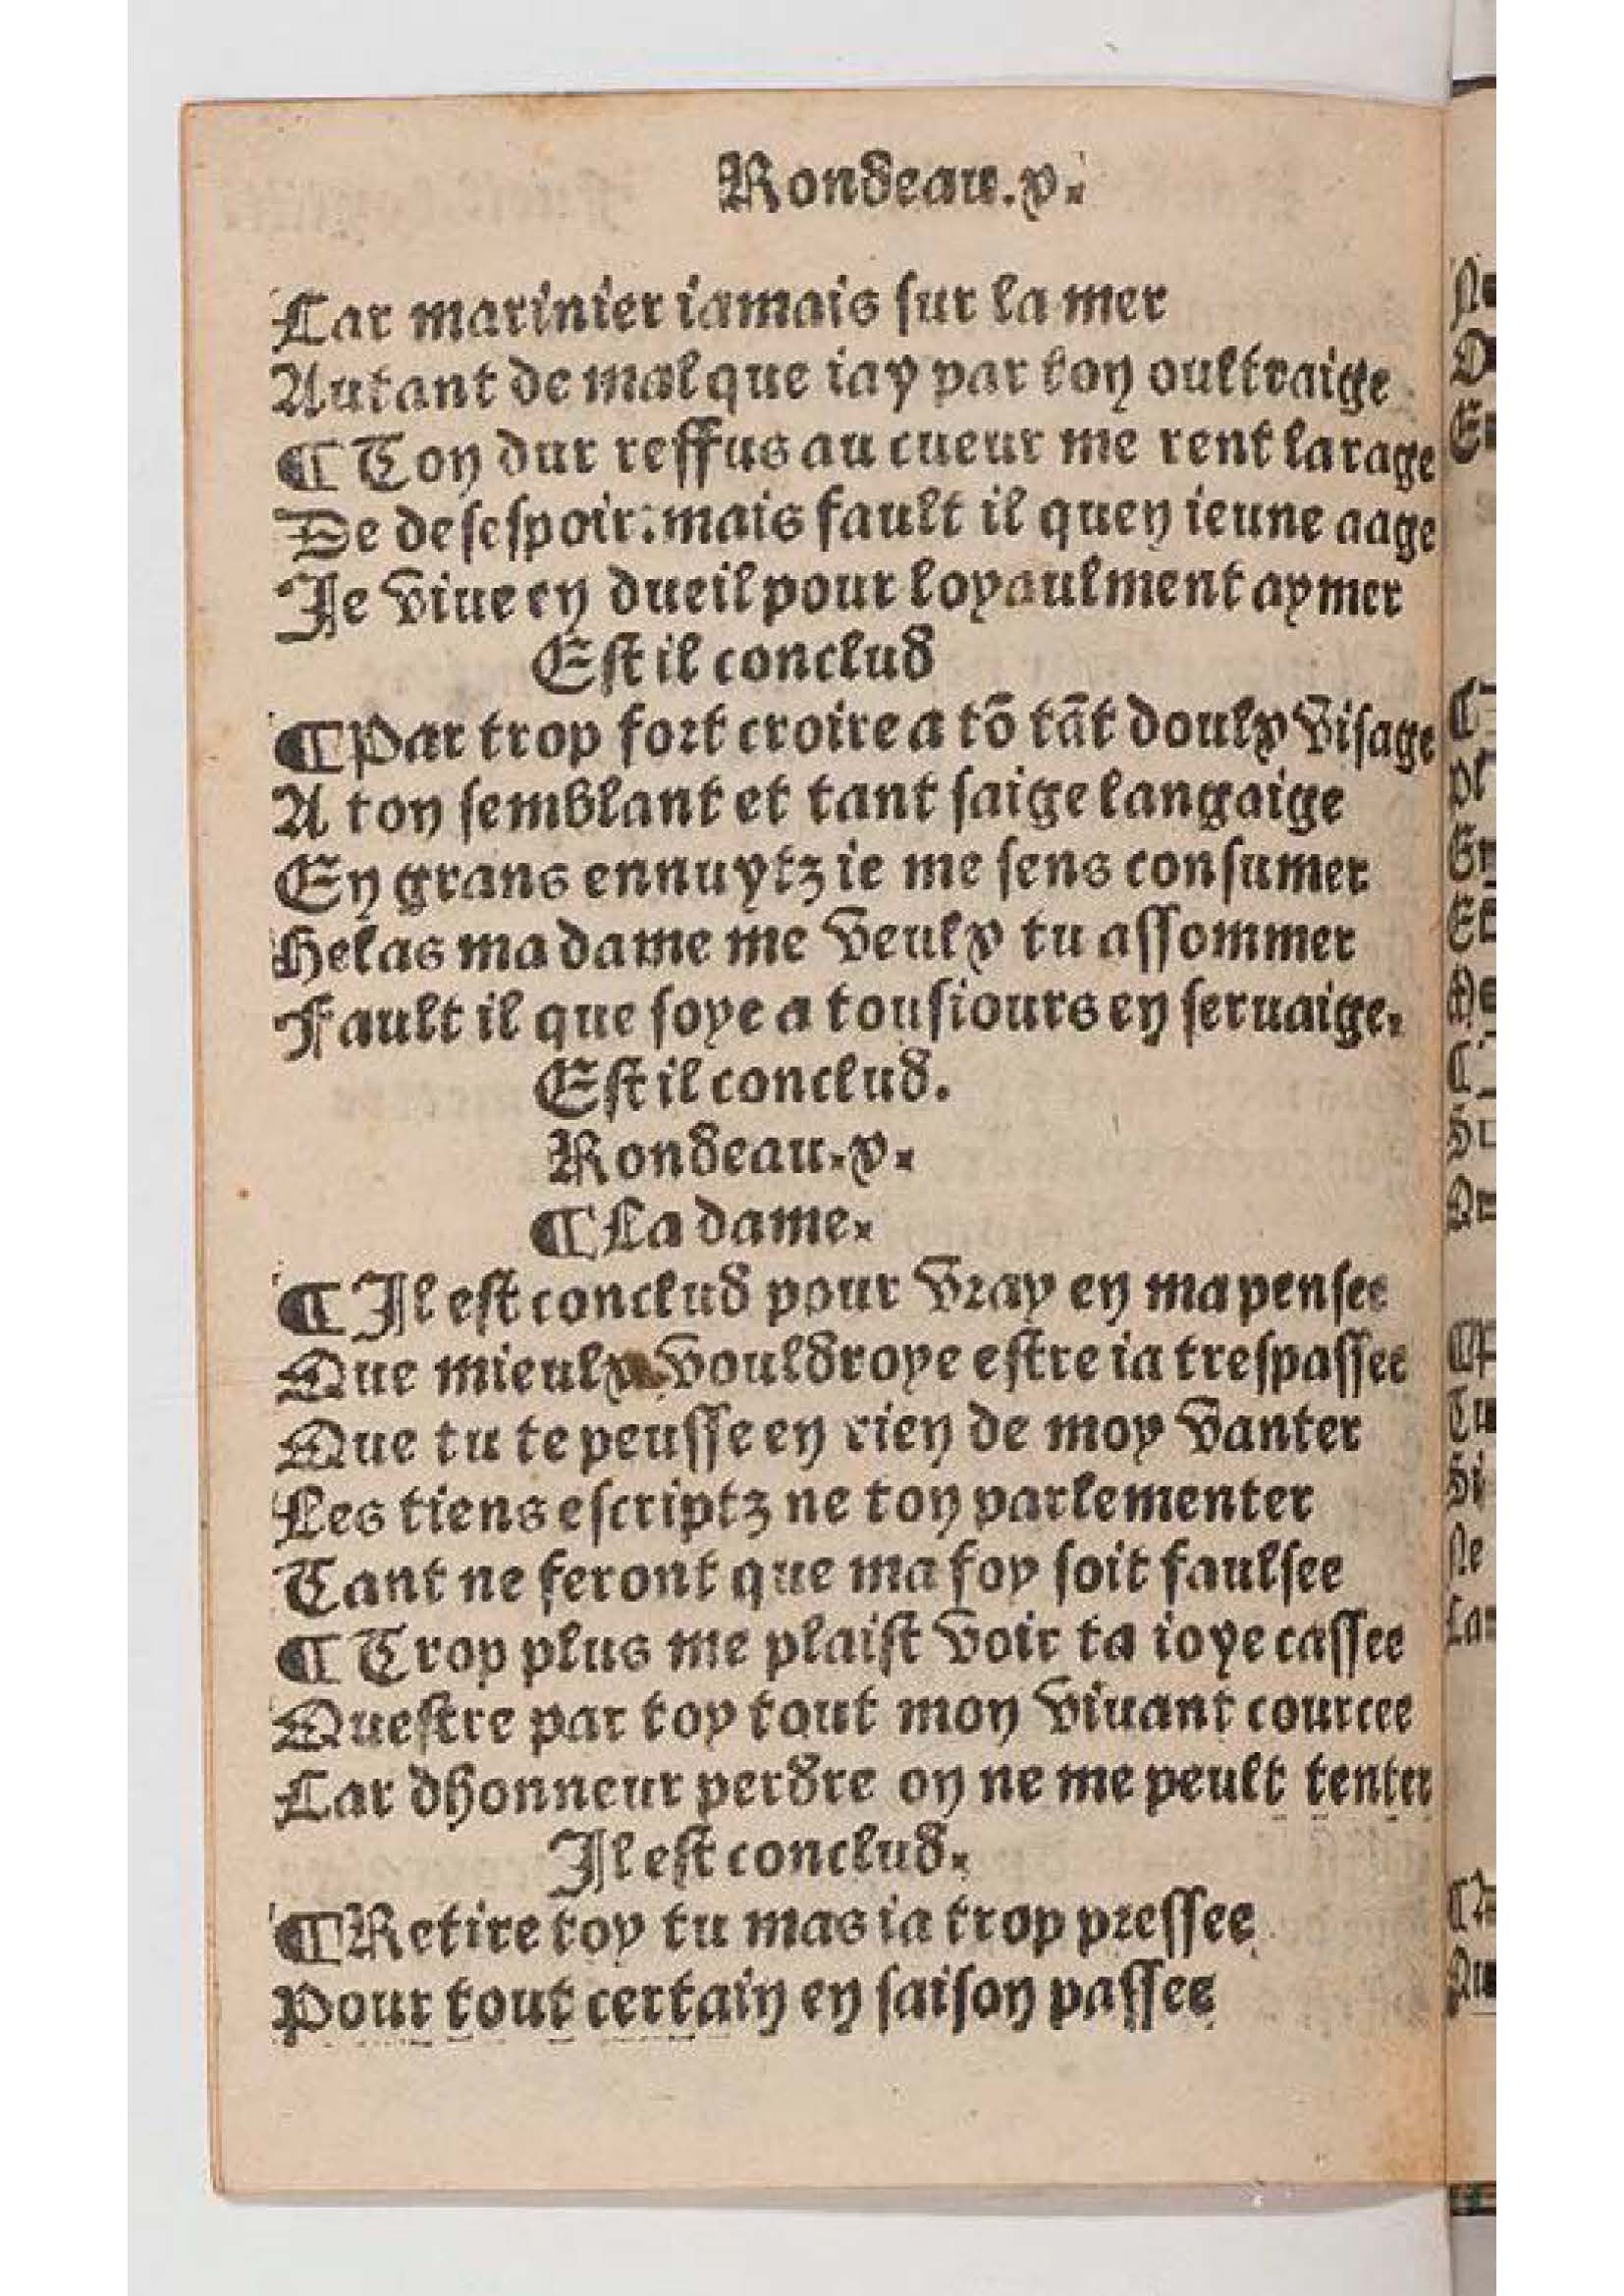 Rondeau.x.
Car marinier iamais sur la mer
Autant de mal que iay par ton oultraige
¶ Ton dur reffus au cueur me rent la rage
De desespoir: mais fault il quen ieune aage
Je viue en dueil pour loyaulment aymer
Est il conclud
¶ Par trop fort croire a tõ tãt doulx visage
A ton semblant et tant saige langaige
En grans ennuytz ie me sens consumer
Helas ma dame me veulx tu assommer
Fault il que soye a tousiours en seruaige.
Est il conclud.
Rondeau.x.
¶ La dame.
¶ Il est conclud pour vray en ma pensee
Que mieulx vouldroye estre ia trespassee
Que tu te peusse en rien de moy vanter
Les tiens escriptz ne ton parlementer
Tant ne feront que ma foy soit faulsee
¶ Trop plus me plaist voir ta ioye cassee
Questre par toy tout mon viuant cource
Car dhonneur perdre on ne me peult tenter
Il est conclud.
¶ Retire toy tu mas ia trop pressee
Pour tout certain en saison passee